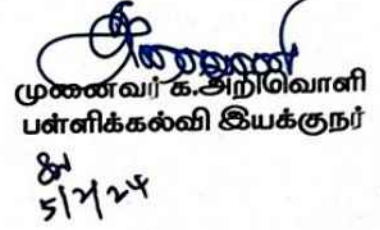 முனைவர் க.அறிவொளி
பள்ளிக்கல்வி இயக்குநர்
5/2/24